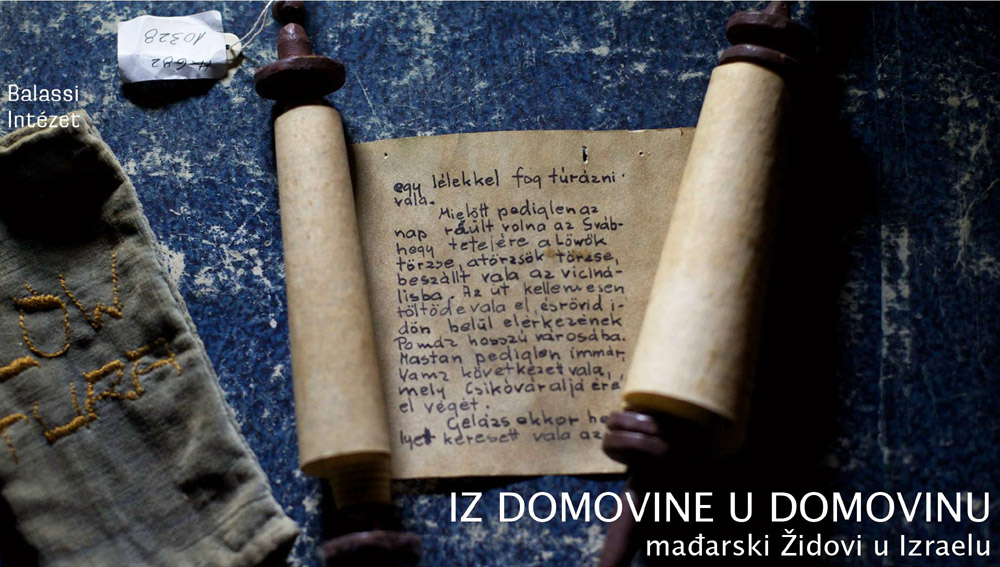 10328
11682
Balassi
Intézet
OW
TURA
egy lélekkel fog túrázni
vala.
Mielőtt pediglen az
nap ráült volna az Sváb-
hegy tetejére a Löwök
törzse, a törzsök törzse,
beszállt vala az viciná-
lisba. Az út kellemesen
töltőde vala el, és rövid i-
dőn belül elérkezének
Pomáz hosszú városába.
Mastan pediglen immár
Vamz következet vala,
mely Csikóváralja ére
el végét.
Gelázs okkor he
lyet keresett vala az
IZ DOMOVINE U DOMOVINU
mađarski Židovi u Izraelu